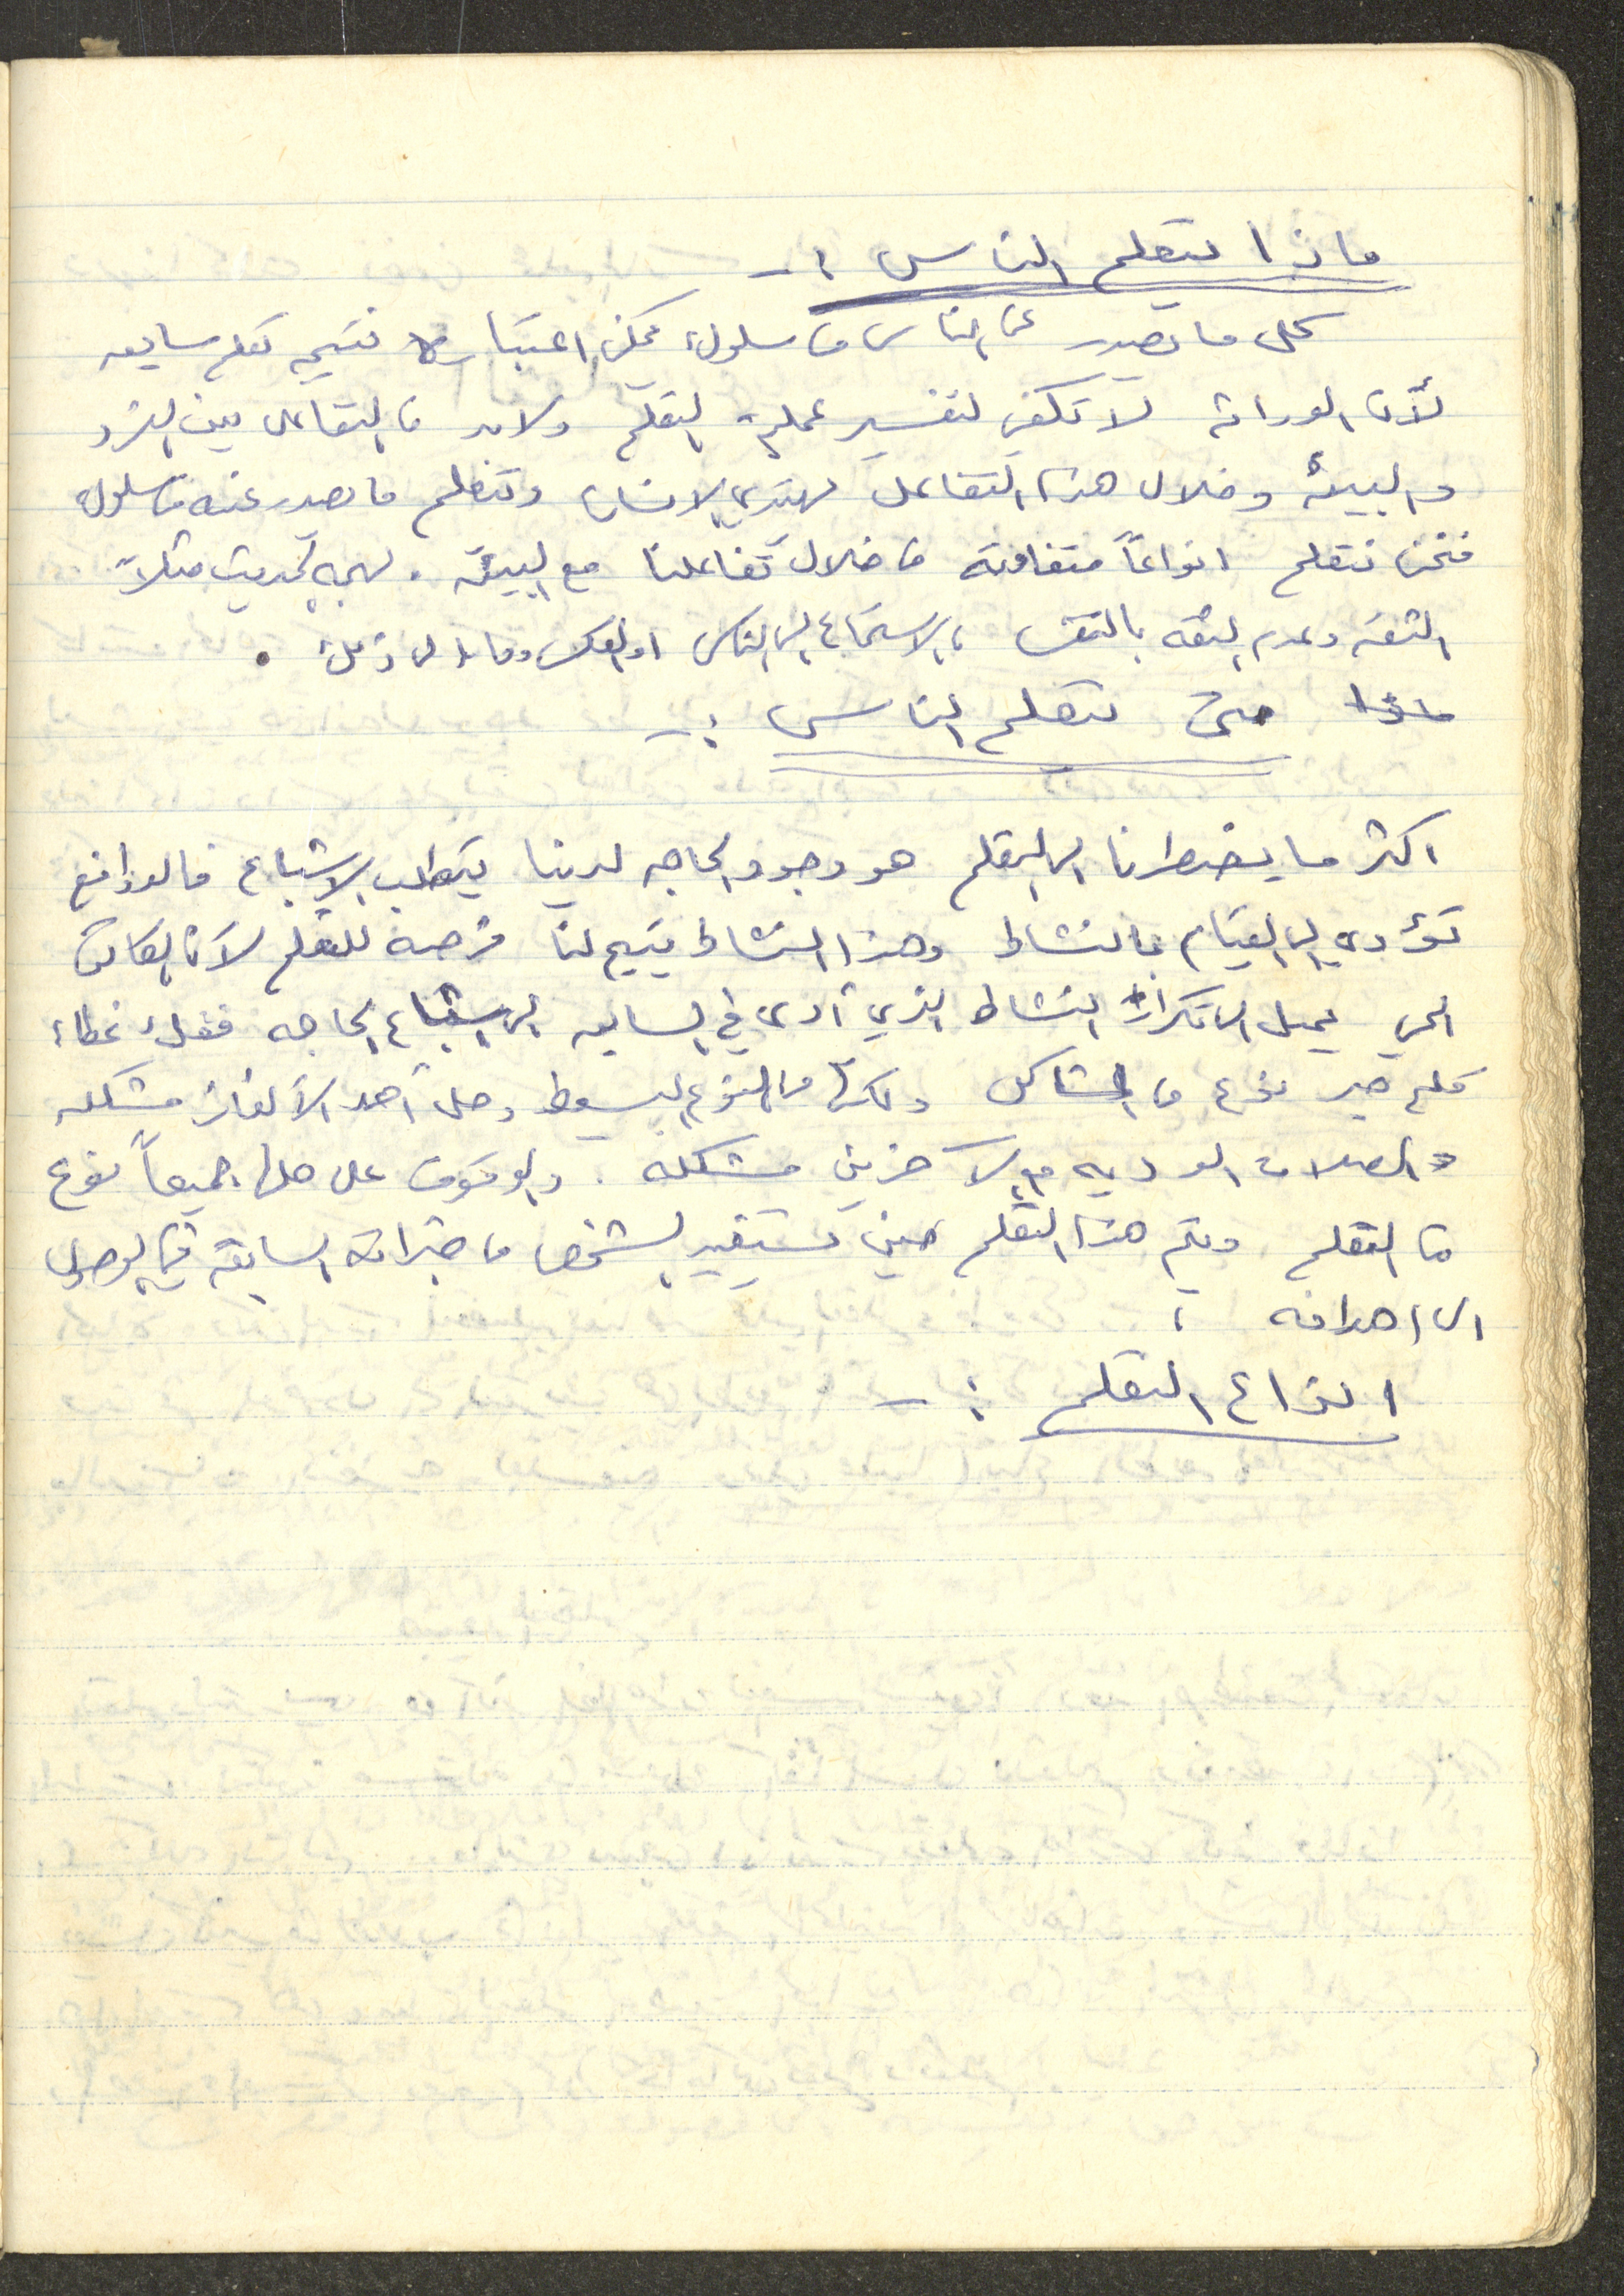 ماذا يتعلم الناس :-
كل ما يصدر عن الناس من سلوك يمكن اعتباره نتيجه تعلم سابقه
لأن الوراثة لا تكفي لتفسير عملية التعلم ولابد من التفاعل بين الفرد
والبيئة وخلال هذا التفاعل يهتدي الانسان ويتعلم ما يصدر عنه من سلوك
فنحن نتعلم انواعاً متفاوتة من خلال تفاعلنا مع البيئة . لهجه الحديث مثلاً
الثقه وعدم الثقه بالنفس ، الاستماع الى الناس او العكس وما الى ذلك .
متى يتعلم الناس :-
اكثر ما يضطرنا الى التعلم هو وجود الحاجه لدينا يتطلب الاشباع فالدوافع
تؤدي الى القيام بالنشاط وهذا النشاط يتيح لنا فرصه للتعلم لأن الكائن
الحي يميل الى تكرار النشاط الذي أدى في السابق الى اشباع الحاجه ففك غطاء
قلم حبر نوع من المشاكل ولكنها من النوع البسيط وحل أحد الألغاز مشكله
والصلات الوديه مع الآخرين مشكله . والوقوف على حلها جميعاً نوع
من التعلم ويتم هذا التعلم حين يستفيد الشخص من خبراته السابقة في الوصول
الى اهدافه .
انواع التعلم :-